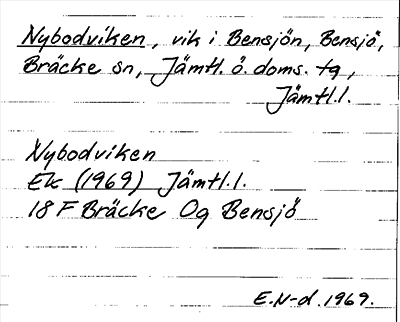 Nybodviken, vik i Bensjön, Bensjö,
Bräcke sn, Jämtl. ö. doms. tg,
Jämtl. l.
Nybodviken
Ek (1969) Jämtl. l.
18 F Bräcke Og Bensjö
E.N-d. 1969.